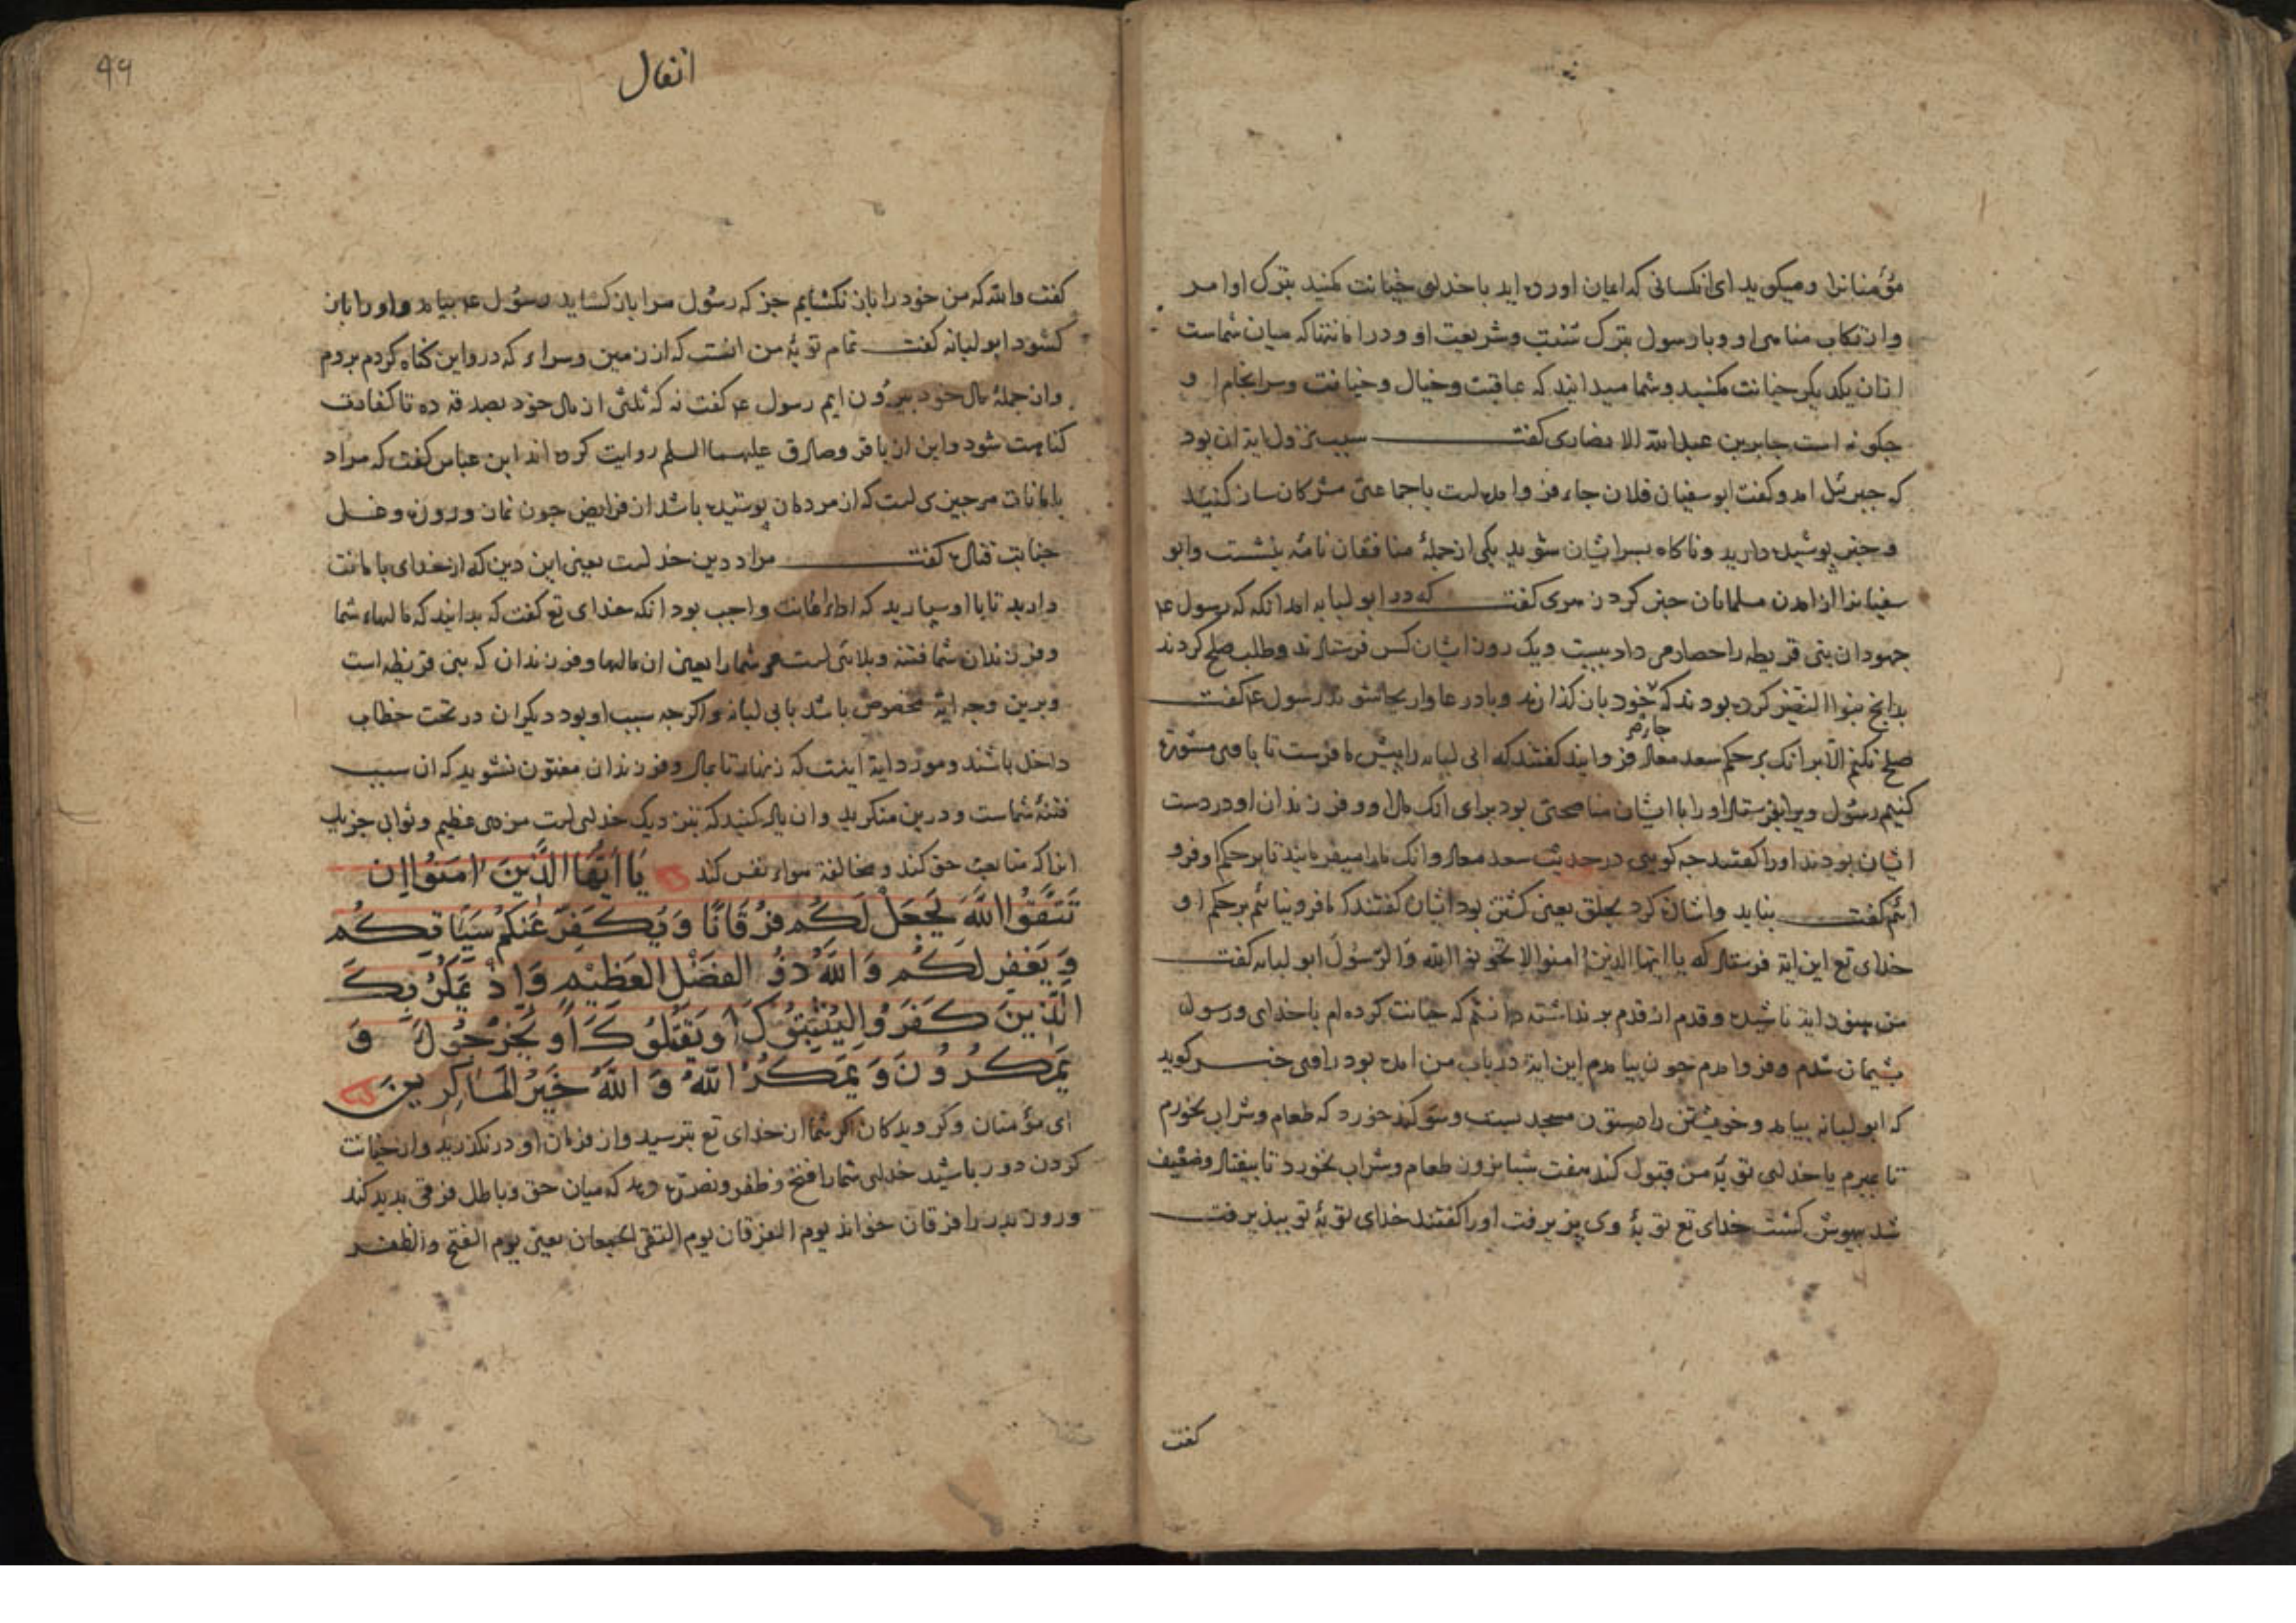 مؤمنانرا ومیکوید ای انکسانی که ایمان اورده اید با خدای خیانت مکنید بترک اوامر
وارتکاب مناهی او وبا رسول بترک سنت وشریعت او ودر امانتها که میان شماست
ازان یکدیکر خیانت مکنید وشما میدانید که عاقبت وخیال وخیانت وسرانجام او
جکونه است جابر بن عبدالله الانصاری کفت سبب نزول ایة ان بود
که جبرئیل امد وکفت ابو سفیان فلان جاء فرود امده است با جماعتی مشرکان ساز کنید
وخبر پوشیده دارید وناکاه بسر ایشان شوید یکی از جملهٔ منافقان نامهٔ بنبشت وابو
سفیانرا از امدن مسلمانان خبر کرد زهری کفت که در ابو لبابه امد انکه که رسول ع
جهودان بنی قریظه را حصار می داد بیست ویک روز ایشان کس فرستادند وطلب صلح کردند
بدانج بنوا النضیر کرده بودند که خود بان کذارند وبادرعا واریحا شوند رسول ع کفت
جارض
صلح نکنم الا برانک بر حکم سعد معاذ فرو ایند کفتند که ابی لبابه را پیش ما فرست تا با وی مشورة
کنیم رسول ویرا بفرستاد اورا با ایشان مناصحتی بود برای انک مال او وفرزندان او در دست
ایشان بودند اورا کفتند جه کویی در حدیث سعد معاذ وانک مارا میفرمایند تا بر حکم او فرو
ائیم کفت نباید واشارت کرد بحلق یعنی کشتن بود ایشان کفتند که ما فرو نیائیم بر حکم او
خدای تع این ایة فرستاد که یا ایها الذین امنوا لا تخونوا الله والرسول ابو لبابه کفت
من هنوز ایة ناشنیده وقدم از قدم بر نداشته دانستم که خیانت کرده ام با خدای ورسول
پشیمان شدم وفرو امدم جون بیامدم این ایة در باب من امده بود راوی خبر کوید
که ابو لبابه بیامد وخویشتن را در ستون مسجد بست وسوکند خورد که طعام وشراب نخورم
تا بمیرم یا خدای توبهٔ من قبول کند هفت شبانروز طعام وشراب نخورد تا بیفتاد وضعیف
شد بیهوش کشت خدای تع توبهٔ وی بپذیرفت اورا کفتند خدای توبهٔ تو بپذیرفت
کفت
99
انفال
کفت والله که من خود را باز نکشایم جز که رسول مرا باز کشاید رسول ع بیامد واورا باز
کشود ابو لبابه کفت تمام توبهٔ من انست که از زمین وسراء که در و این کناه کردم بروم
واز جملهٔ مال خود بیرون ایم رسول ع کفت نه که ثلثی از مال خود بصدقه ده تا کفارت
کناهت شود واین از باقر وصادق علیهما السلم روایت کرده اند ابن عباس کفت که مراد
بامانات هر جیزی است که از مردمان پوشیده باشد از فرایض جون نماز وروزه وغسل
جنابت قتاده کفت مراد دین خداست یعنی این دین که از خدای بامانت
دارید تا با او سپارید که اداء امانت واجب بود انکه خدای تع کفت که بدانید که مالهاء شما
وفرزندان شما فتنة وبلائی است مر شما را یعنی ان مالها وفرزندان که بنی قریظه است
وبرین وجه ایة مخصوص باشد بابی لبابه واکرجه سبب او بود دیکران در تحت خطاب
داخل باشند ومورد ایة اینست که زنهار تا بمال وفرزندان مفتون نشوید که ان سبب
فتنهٔ شماست ودرین منکرید وان یاد کنید که بنزدیک خدای است مزدی عظیم وثوابی جزیل
انرا که متابعت حق کند ومخالفة هواء نفس کند یَا اَیُّهَا الَّذِینَ اٰمَنُوا اِن
تَتَّقُوا اللّٰهَ یَجْعَلْ لَکُم فُرْقَانًا وَ یُکَفِّرْ عَنکُمْ سَیِّاٰتِکُمْ
وَ یَغْفِرْ لَکُمْ وَ اللّٰهُ ذُو الْفَضْلِ الْعَظِیْمِ وَ اِذْ یَمْکُرُ بِکَ
الَّذِینَ کَفَرُوا لِیُثْبِتُوْکَ اَو یَقْتُلُوکَ اَو یُخْرِجُوکَ وَ
یَمْکُرُونَ وَ یَمْکُرُ اللّٰهُ وَ اللّٰهُ خَیْرُ الْمَاکِرِینَ
ای مؤمنان وکرویدکان اکر شما از خدای تع بترسید واز فرمان او در نکذرید واز خیانت
کردن دور باشید خدای شما را فتح وظفر ونصرت دهد که میان حق وباطل فرقی پدید کند
وروز بدر را فرقان خواند یوم الفرقان یوم التقی الجمعان یعنی یوم الفتح والظفر